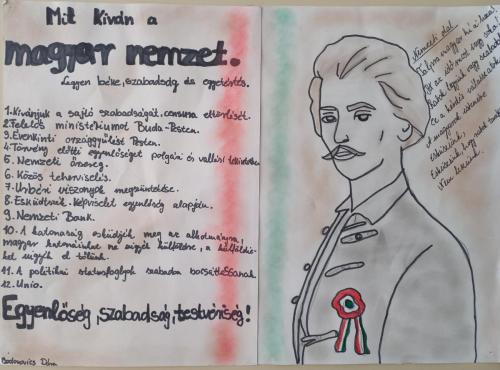 Mit kíván a
magyar nemzet.
Legyen béke, szabadság és egyetértés.
1. Kívánjuk a sajtó szabadságát, censura eltörlését.
2. Felelős ministeriumot Buda-Pesten.
3. Évenkinti országgyülést Pesten.
4. Törvény előtti egyenlőséget polgári és vallási tekintetben
5. Nemzeti őrsereg.
6. Közös teherviselés.
7. Urbéri viszonyok megszüntetése.
8. Esküdtszék. Képviselet egyenlőség alapján.
9. Nemzeti Bank.
10. A katonaság esküdjék meg az alkotmányra,
magyar katonáinkat ne vigyék külföldre, a külföldie-
ket vigyék el tőlünk.
11. A politikai statusfoglyok szabadon bocsáttassanak.
12. Unio.
Egyenlőség, szabadság, testvériség!
Bodorovics Dóra
Nemzeti dal
Talpra magyar, hí a haza!
Itt az idő, most vagy soha!
Rabok legyünk, vagy szabadok?
Ez a kérdés, válasszatok!
A magyarok istenére
Esküszünk,
Esküszünk, hogy rabok tovább
Nem leszünk!